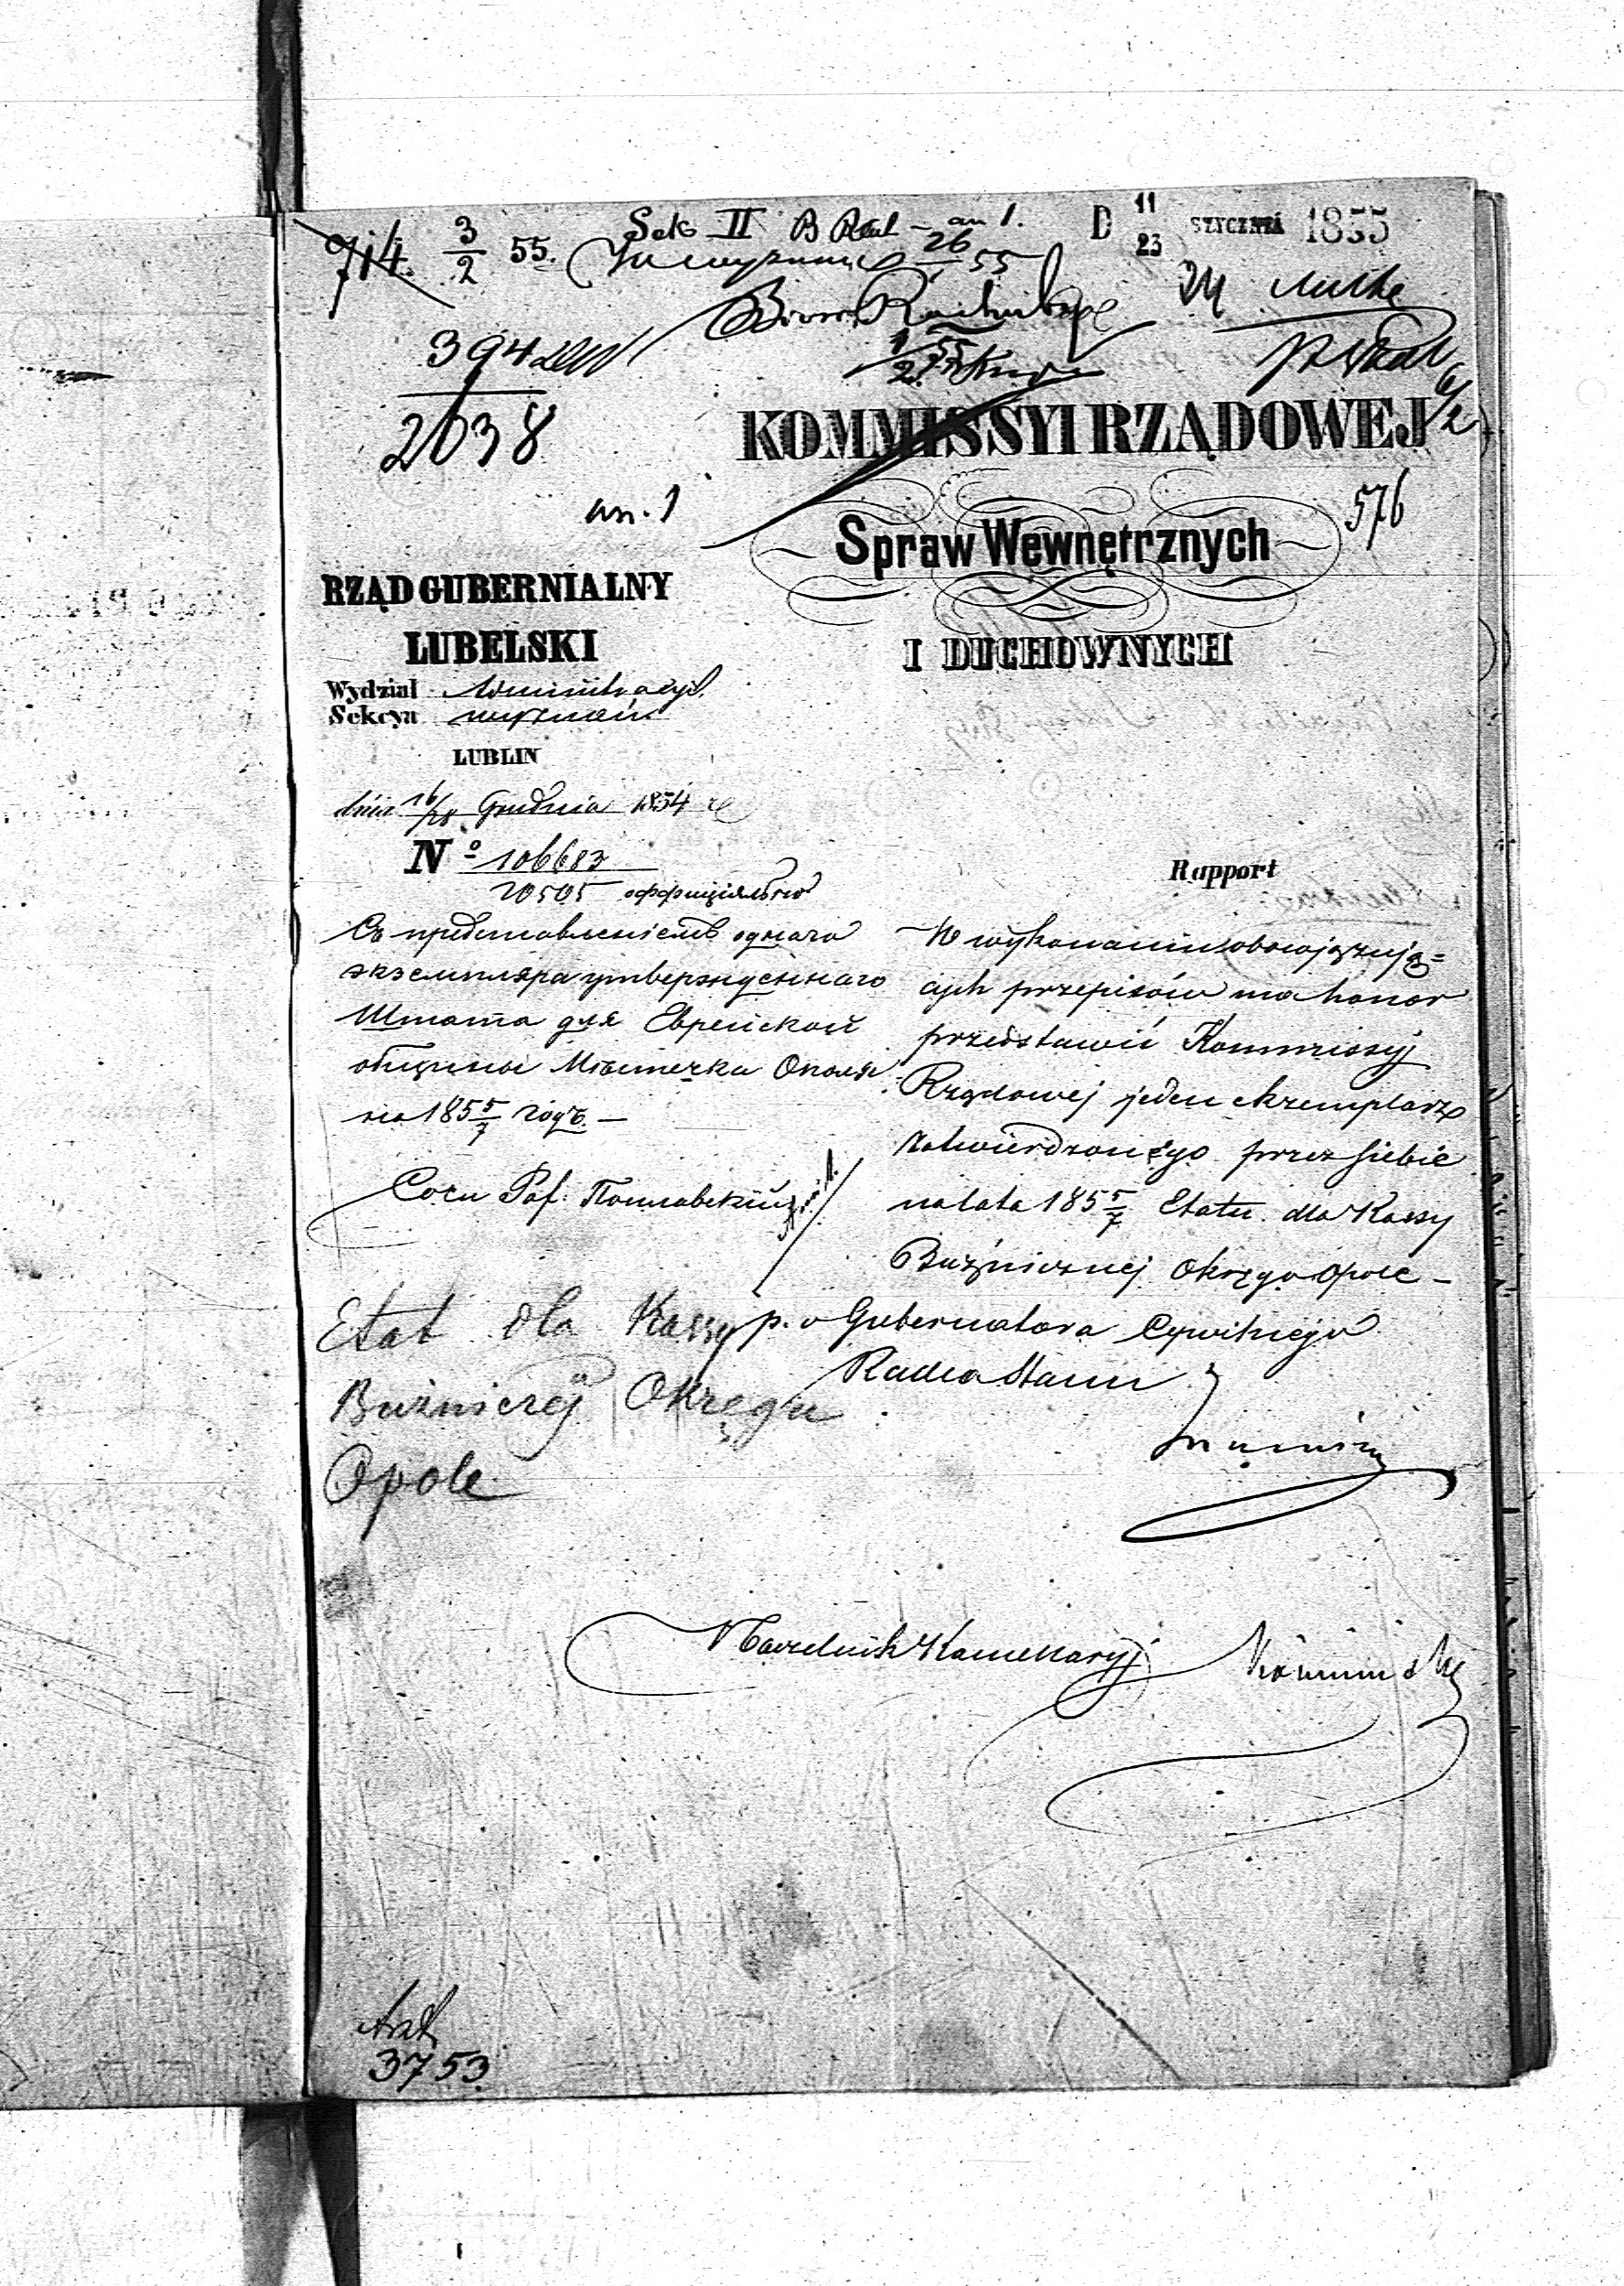 714. 3/2 55. Sek II B Rach - an 1. D 11/23 STYCZNIA 1855
26/1 55
Biuro Rachuby
394
2038
1/2 55
KOMMISSYI RZĄDOWEJ
576
an. 1
Spraw Wewnętrznych
RZĄD GUBERNIALNY
LUBELSKI
I DUCHOWNYCH
Wydział Administracyj.
Sekcya wyznań
LUBLIN
dnia 16/28 Grudnia 1854 r
Nº 106683
20505 оффиціяльно
Rapport
Съ представленіемъ одного
экземпляра утвержденнаго
Штата для Еврейской
общины Мѣстечка Ополя
на 185 5/7 годъ. —
W wykonaniu obowiązują=
cych przepisów ma honor
przedstawić Kommissyj
Rządowej jeden exemplarz
zatwierdzonego przez siebie
na lata 185 5/7 Etatu dla Kassy
Bużnicznej Okręgu Opole -
Etat dla Kassy
Bużniczej Okręgu
Opole
p. o Gubernatora Cywilnego
Radca Stanu
Naczelnik Kancellaryj
3753